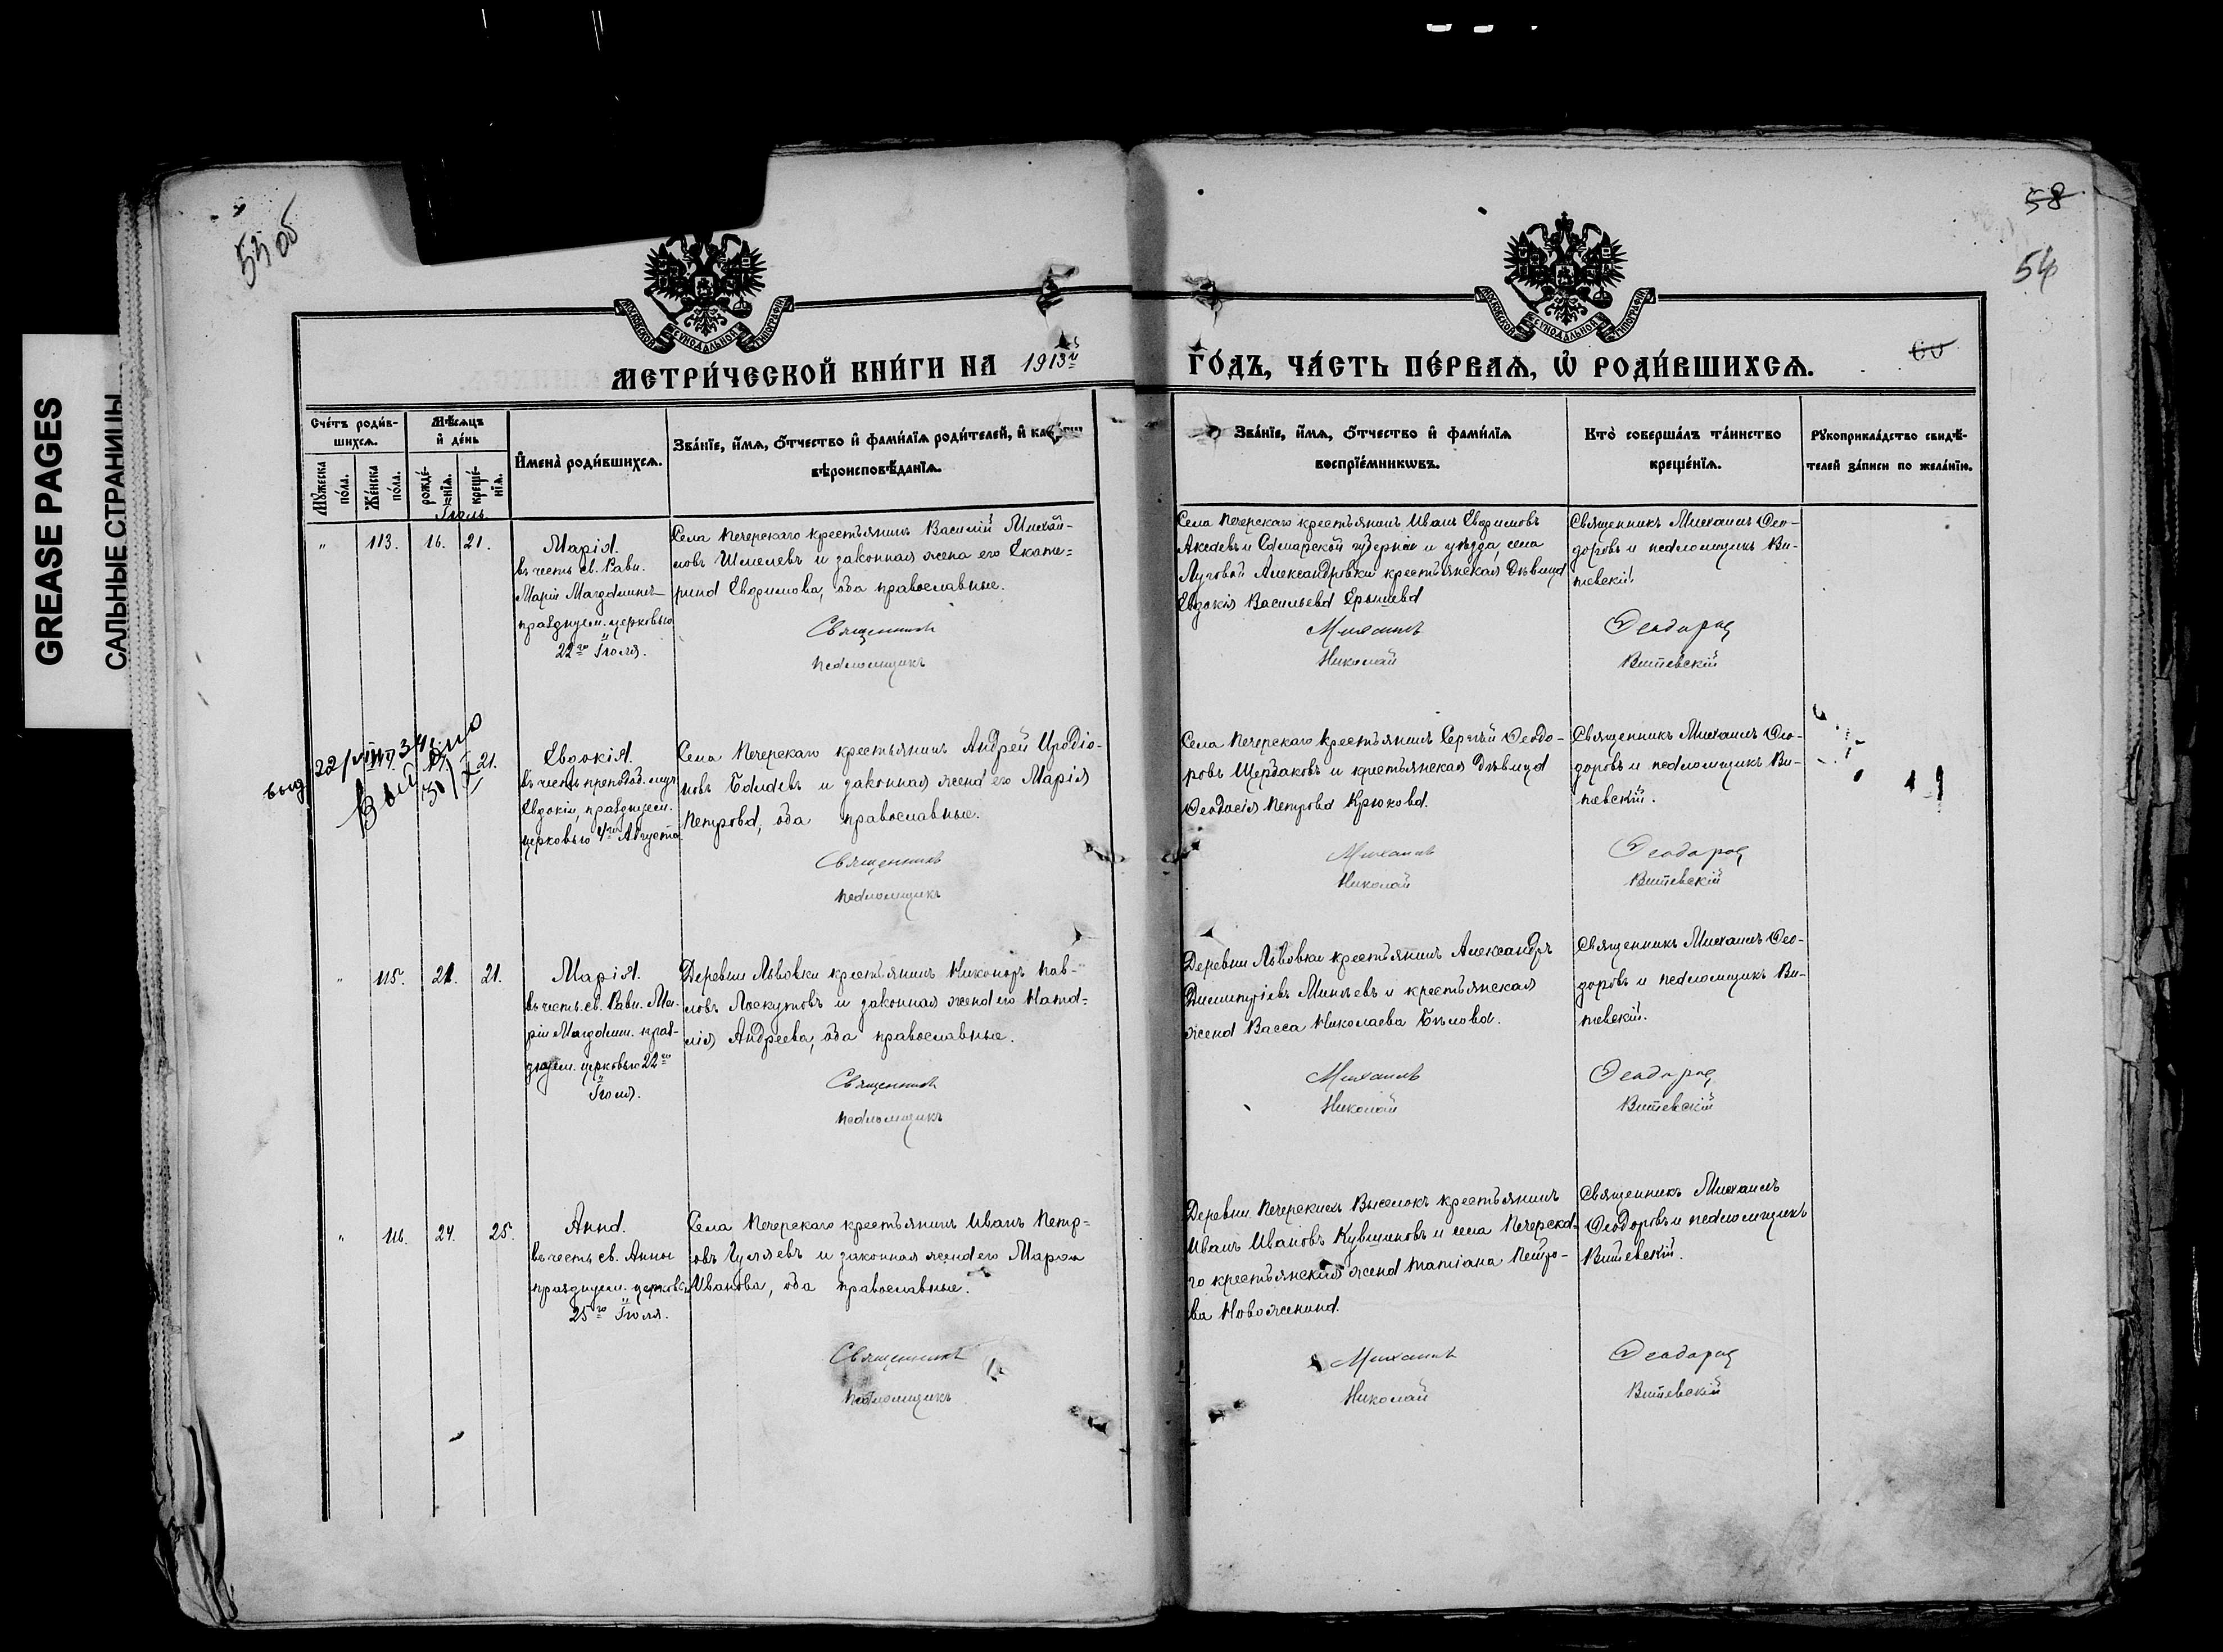 GREASE PAGES
САЛЬНЫЕ СТРАНИЦЫ
53 об
58
54
60
МОСКОВСКОЙ СѴНОДАЛЬНОЙ ТИПОГРАФІИ
МОСКОВСКОЙ СѴНОДАЛЬНОЙ ТИПОГРАФІИ
МЕТРИ́ЧЕСКОЙ КНИ́ГИ НА 1913й ГО́ДЪ, ЧА́СТЬ ПЕ́РВАѦ, Ѡ҆ РОДИ́ВШИХСѦ.
Сче́тъ роди́в-
шихсѧ.
Мѣ́сѧцъ
и҆ де́нь
Мꙋ́жеска
по́ла.
Же́нска
по́ла.
рожде́-
нїѧ.
креще́-
нїѧ.
И҆мена̀ роди́вшихсѧ.
Зва́нїе, и҆́мѧ, ѻ҆́тчество и҆ фами́лїѧ роди́телей, и҆
вѣроисповѣ́данїѧ.
Зва́нїе, и҆́мѧ, ѻ҆́тчество и҆ фами́лїѧ
воспрїе́мникѡвъ.
Кто̀ соверша́лъ та́инство
креще́нїѧ.
Рꙋкоприкла́дство свидѣ́-
телей за́писи по жела́нїю.
Іюль
" 113. 16. 21.
Марія.
въ честь св. Равн.
Маріи Магдалины
празднуем. церковью
22го Іюля.
Села Печерскаго крестьянинъ Василій Михай-
ловъ Шмелевъ и законная жена его Екате-
рина Евфимова, оба православные.
Священникъ
псаломщикъ
Села Печерскаго крестьянинъ Иванъ Евфимовъ
и Самарской губерніи и уѣзда, села
Луговой Александровки крестьянская дѣвица
Евдокія Васильева
Михаилъ
Николай
Священникъ Михаилъ Ѳео-
доровъ и псаломщикъ Ви-
тевскій.
Ѳеодоровъ
Витевскій
выд.
22/VII
21.
Евдокія.
въ честь преподоб. муч.
Евдокіи, празднуем.
церковью 4го Августа.
Села Печерскаго крестьянинъ Андрей Иродіо-
новъ и законная жена его Марія
Петрова, оба православные.
Священникъ
псаломщикъ
Села Печерскаго крестьянинъ Сергѣй Ѳеодо-
ровъ Щербаковъ и крестьянская дѣвица
Ѳеодосія Петрова Крюкова.
Михаилъ
Николай
Священникъ Михаилъ Ѳео-
доровъ и псаломщикъ Ви-
тевскій.
Ѳеодоровъ
Витевскій
" 115. 21. 21.
Марія.
въ честь св. Равн. Ма-
ріи Магдалин. праз-
днуем. церковью 22го
Іюля.
Деревни Львовки крестьянинъ Никаноръ Пав-
ловъ Лоскутовъ и законная жена его Ната-
лія Андреева, оба православные.
Священникъ
псаломщикъ
Деревни Львовки крестьянинъ Александръ
Димитріевъ Минѣевъ и крестьянская
жена Васса Николаева Бѣлова.
Михаилъ
Николай
Священникъ Михаилъ Ѳео-
доровъ и псаломщикъ Ви-
тевскій.
Ѳеодоровъ
Витевскій
" 116. 24. 25.
Анна.
въ честь св. Анны
празднуем. церковью
25го Іюля.
Села Печерскаго крестьянинъ Иванъ Петр-
овъ Гуляевъ и законная жена его Марѳа
Иванова, оба православные.
Священникъ
псаломщикъ
Деревни Печерскихъ Выселокъ крестьянинъ
Иванъ Ивановъ Кувшиновъ и села Печерска-
го крестьянская жена Татіана Петро-
ва Новоженина.
Михаилъ
Николай
Священникъ Михаилъ
Ѳеодоровъ и псаломщикъ
Витевскій.
Ѳеодоровъ
Витевскій